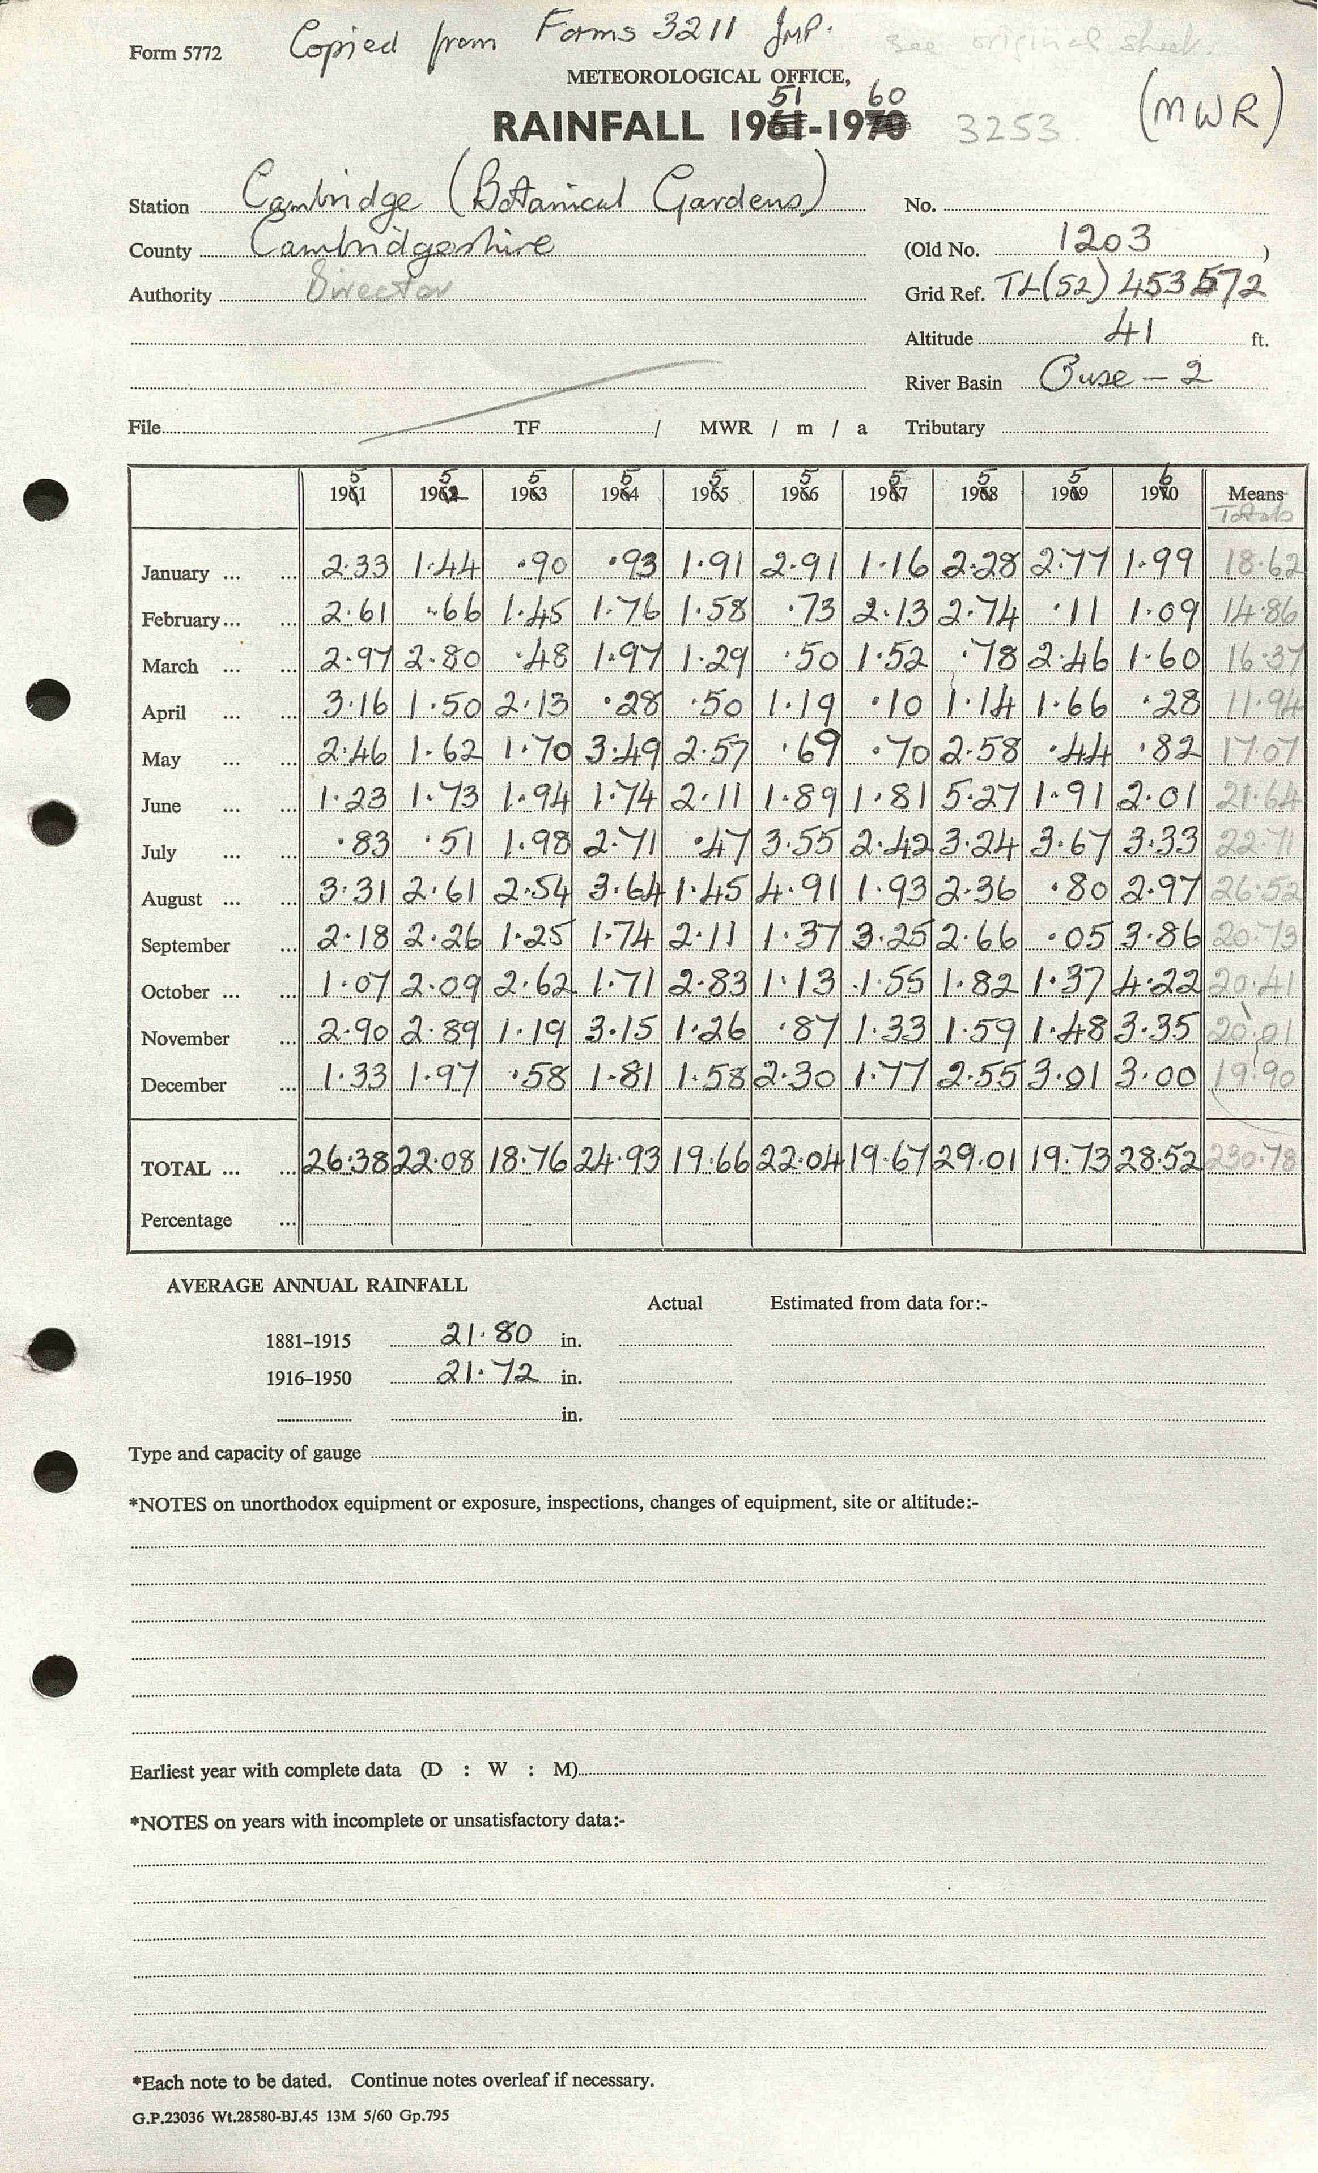 Form 5772 Copied from Forms 3211 JMP. See original sheet.
METEOROLOGICAL OFFICE,
51 60
RAINFALL 1961-1970 3253 (MWR)
Station Cambridge (Botanical Gardens) No.
County Cambridgeshire (Old No. 1203 )
Authority Director Grid Ref. TL(52) 453572
Altitude 41 ft.
River Basin Ouse - 2
File TF / MWR / m / a Tributary
5 5 5 5 5 5 5 5 5 6
1961 1962 1963 1964 1965 1966 1967 1968 1969 1970 Means
Totals
January ... ... 2.33 1.44 .90 .93 1.91 2.91 1.16 2.28 2.77 1.99 18.62
February ... ... 2.61 .66 1.45 1.76 1.58 .73 2.13 2.74 .11 1.09 14.86
March ... ... 2.97 2.80 .48 1.97 1.29 .50 1.52 .78 2.46 1.60 16.37
April ... ... 3.16 1.50 2.13 .28 .50 1.19 .10 1.14 1.66 .28 11.94
May ... ... 2.46 1.62 1.70 3.49 2.57 .69 .70 2.58 .44 .82 17.07
June ... ... 1.23 1.73 1.94 1.74 2.11 1.89 1.81 5.27 1.91 2.01 21.64
July ... ... .83 .51 1.98 2.71 .47 3.55 2.42 3.24 3.67 3.33 22.71
August ... ... 3.31 2.61 2.54 3.64 1.45 4.91 1.93 2.36 .80 2.97 26.52
September ... 2.18 2.26 1.25 1.74 2.11 1.37 3.25 2.66 .05 3.86 20.73
October ... ... 1.07 2.09 2.62 1.71 2.83 1.13 1.55 1.82 1.37 4.22 20.41
November ... 2.90 2.89 1.19 3.15 1.26 .87 1.33 1.59 1.48 3.35 20.01
December ... 1.33 1.97 .58 1.81 1.58 2.30 1.77 2.55 3.01 3.00 19.90
TOTAL ... ... 26.38 22.08 18.76 24.93 19.66 22.04 19.67 29.01 19.73 28.52 230.78
Percentage ...
AVERAGE ANNUAL RAINFALL
Actual Estimated from data for:-
1881–1915 21.80 in.
1916–1950 21.72 in.
in.
Type and capacity of gauge
*NOTES on unorthodox equipment or exposure, inspections, changes of equipment, site or altitude:-
Earliest year with complete data (D : W : M)
*NOTES on years with incomplete or unsatisfactory data:-
*Each note to be dated. Continue notes overleaf if necessary.
G.P.23036 Wt.28580-BJ.45 13M 5/60 Gp.795